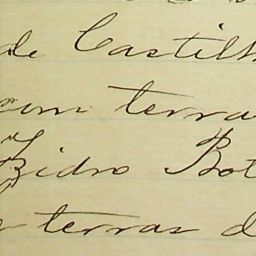 de Castilh
com terra
Izidro Bot
terras d